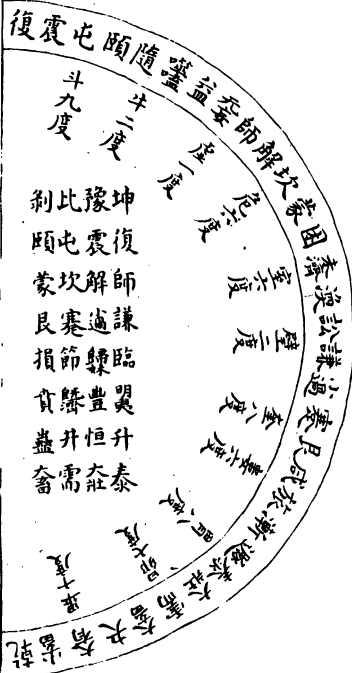 復震屯頤隨噬嗑益无妄師解坎蒙困未濟渙訟謙小過蹇艮咸旅漸遯大壯需大畜夬大有小畜乾
斗九度
斗二度
虛一度
危六度
室六度
壁二度
奎八度
婁六度
昴七度
畢十度
坤復師謙臨明夷升泰
豫震解小過歸妹豐恒大壯
比屯坎蹇節既濟井需
剝頤蒙艮損賁蠱大畜